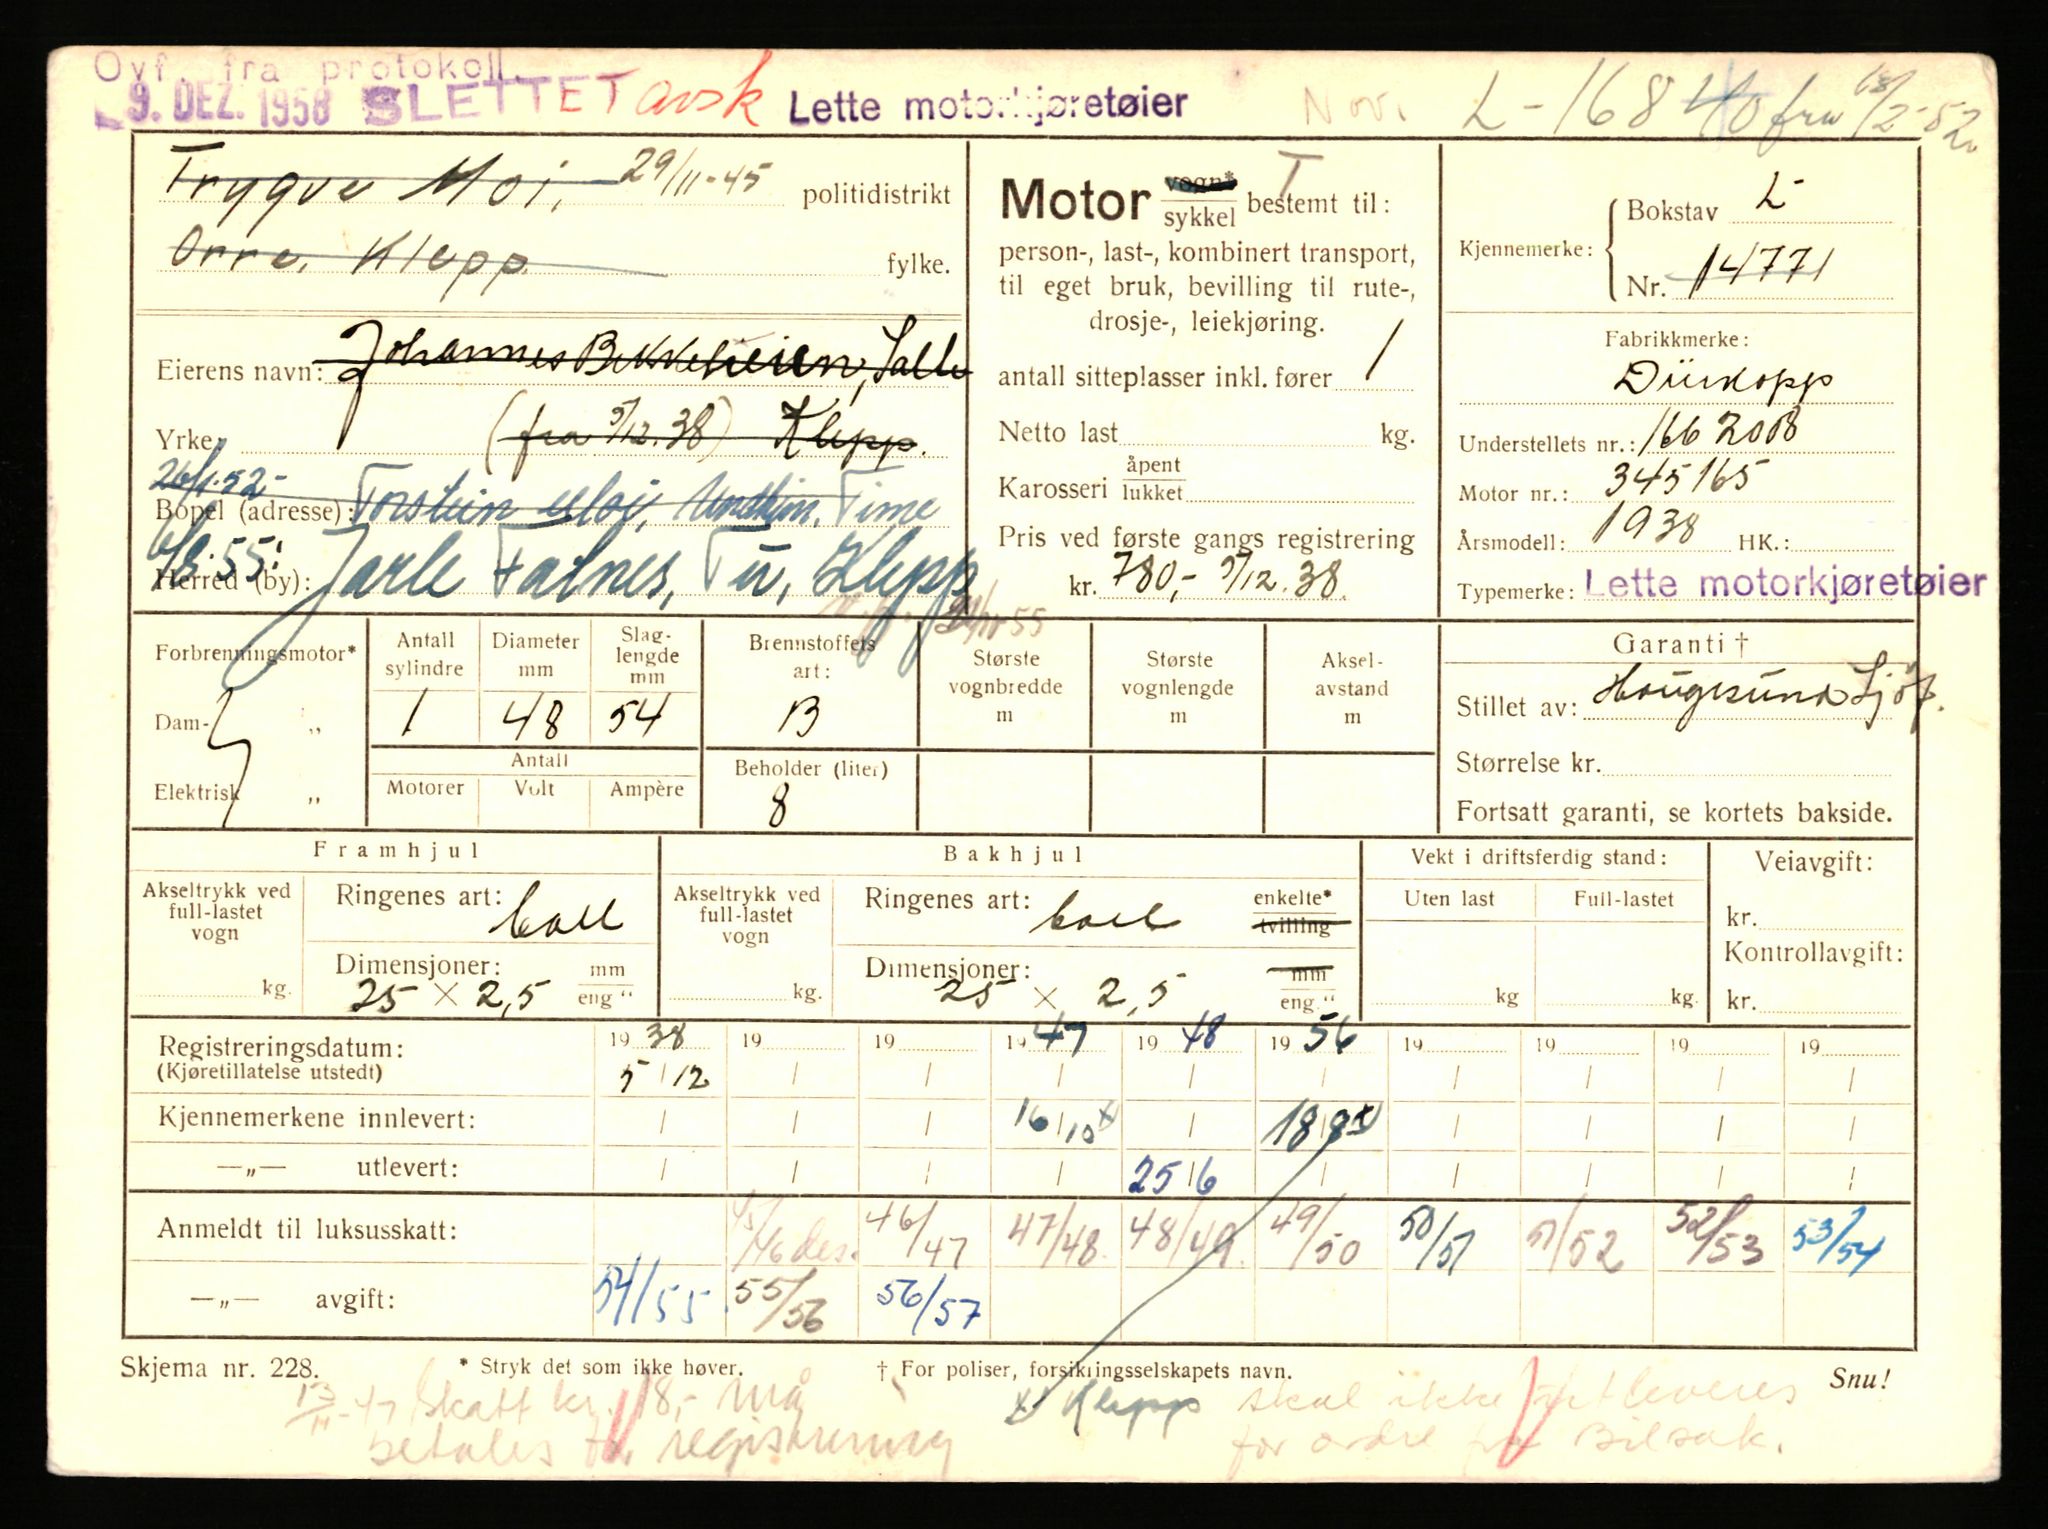 Ovf. fra protokoll.
9. DEZ. 1958 SLETTET avsk Lette motorkjøretøier Novi L-16840 fra 18/2-52.
Trygve Moi, 29/11-45 politidistrikt
Orre, Klepp fylke.
Eierens navn: Johannes Bekkeheien, Salte
Yrke: (fra 5/12.38) Klepp.
26/1-52-
Bopel (adresse): Torstein Moi, Undheim, Time
6/8.55:
Herred (by): Jarle Falnes, Tu, Klepp
Motor vogn* T
sykkel bestemt til:
person-, last-, kombinert transport,
til eget bruk, bevilling til rute-,
drosje-, leiekjøring.
antall sitteplasser inkl. fører 1
Netto last kg.
Karosseri åpent
lukket
Pris ved første gangs registrering
kr. 780,- 5/12.38.
Kjennemerke: Bokstav L-
Nr. 14771
Fabrikkmerke:
Dürkopp
Understellets nr.: 1662008
Motor nr.: 345165
Årsmodell: 1938 HK.:
Typemerke: Lette motorkjøretøier
Forbrenningsmotor*
Dam- „
Elektrisk „
Antall sylindre 1
Diameter mm 48
Slag-lengde mm 54
Antall
Motorer Volt Ampère
Brennstoffets art: B
Beholder (liter) 8
Største vognbredde m
Største vognlengde m
Aksel-avstand m
Garanti †
Stillet av: Haugesund Sjøf.
Størrelse kr.
Fortsatt garanti, se kortets bakside.
Framhjul
Akseltrykk ved full-lastet vogn kg.
Ringenes art: Cord
Dimensjoner: 25 × 2,5 mm
eng "
Bakhjul
Akseltrykk ved full-lastet vogn kg.
Ringenes art: Cord enkelte*
tvilling
Dimensjoner: 25 × 2,5 mm
eng."
Vekt i driftsferdig stand:
Uten last Full-lastet
kg kg.
Veiavgift:
kr.
Kontrollavgift:
kr.
Registreringsdatum: 1938 19 19 1947 1948 1956 19 19 19 19
(Kjøretillatelse utstedt) 5/12 / / / / / / / / /
Kjennemerkene innlevert: / / / 16/10x / 18/8x / / / /
—„— utlevert: / / / / 25/6 / / / / /
Anmeldt til luksusskatt: 45/46 des. 46/47 47/48. 48/49. 49/50 50/51 51/52 52/53 53/54
—„— avgift: 54/55 55/56 56/57
Skjema nr. 228. * Stryk det som ikke høver. † For poliser, forsikringsselskapets navn. Snu!
13/11-47 Skatt kr. 18,- må
betales før registrering
x Klepp skal ikke utleveres
før ordre fra Bilsak.